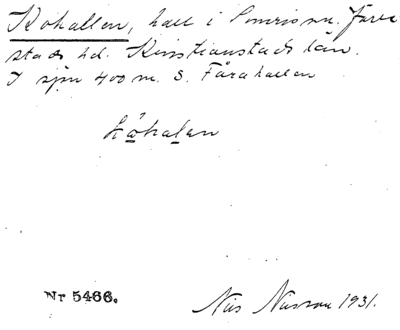 Kohallen, hall i Simrisn. Järre
stads hd. Kristianstads län.
I sjön 400 m. S. Fårahallen
kọ̄halen
Nr 5466.
Nils Nilsson 1931.